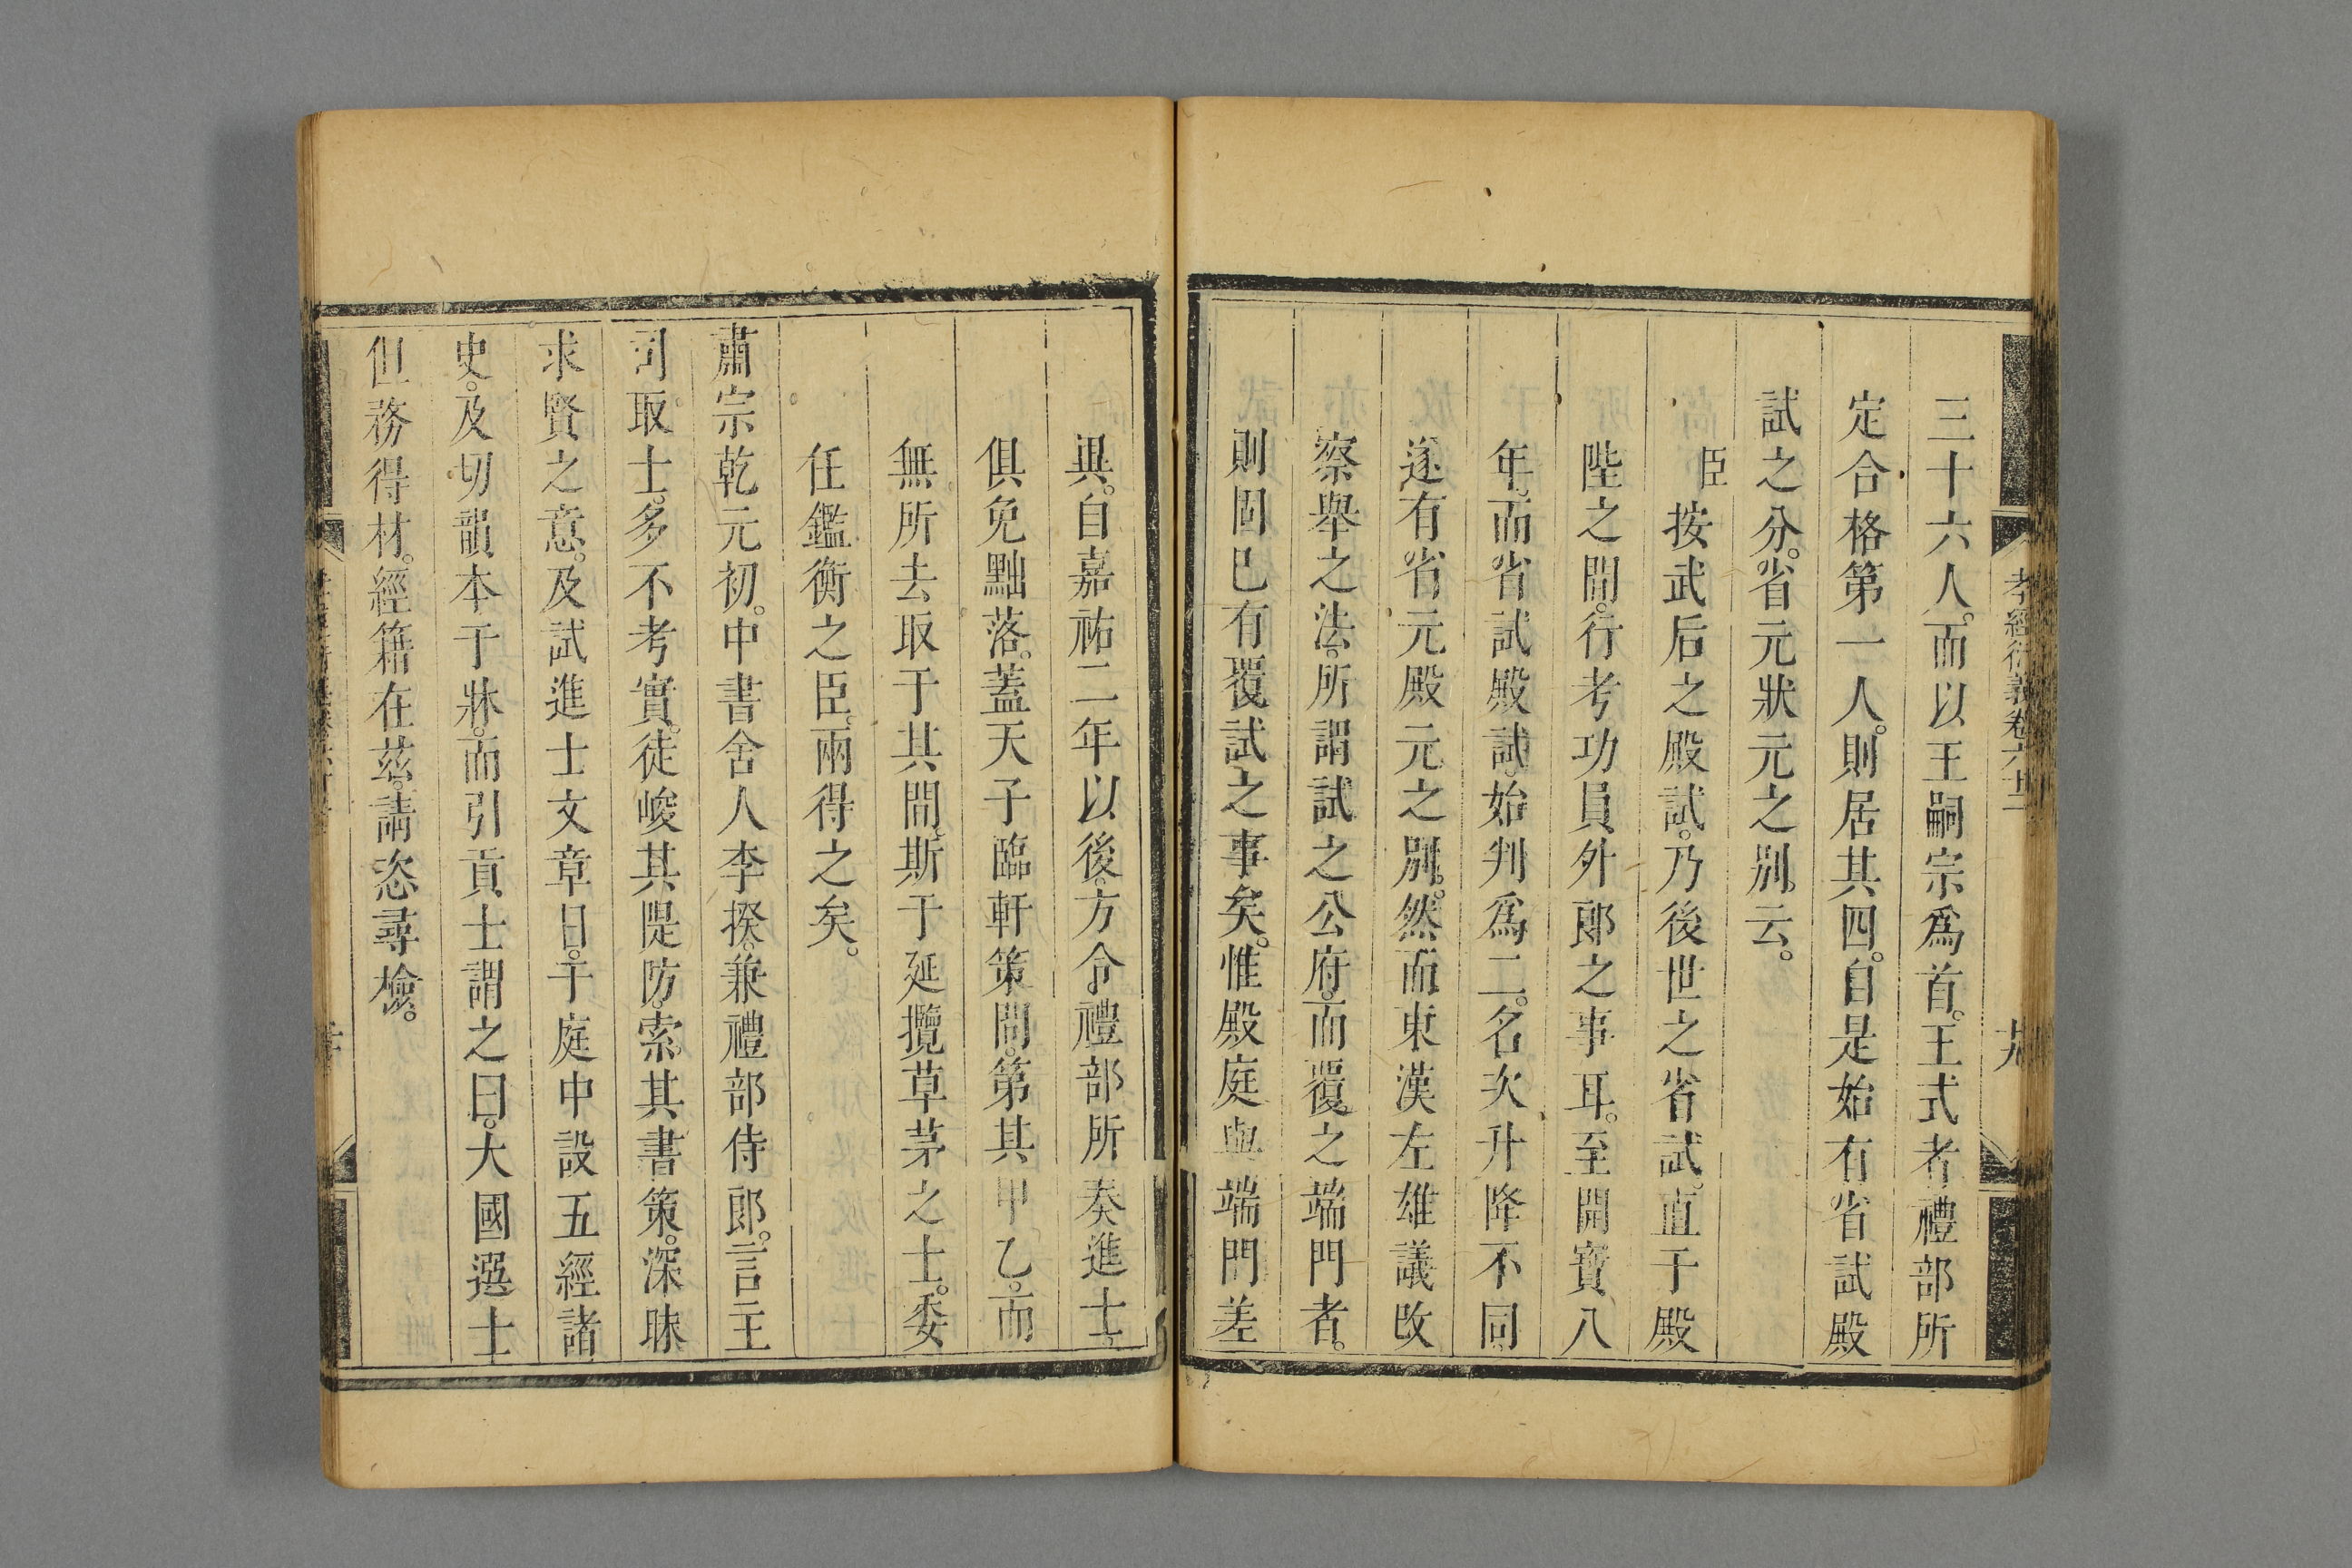 孝經衍義卷六十二
三十六人。而以王嗣宗爲首。王式者禮部所
定合格第一人。則居其四。自是始有省試殿
試之分。省元狀元之別。云。
臣按武后之殿試。乃後世之省試。直于殿
陛之間。行考功員外郎之事耳。至開寶八
年。而省試殿試。始判爲二。名次升降不同。
遂有省元殿元之別。然而東漢左雄議改
察舉之法。所謂試之公府。而覆之端門者。
則固已有覆試之事矣。惟殿庭與端門差
異。自嘉祐二年以後。方令禮部所奏進士。
俱免黜落。蓋天子臨軒策問。第其甲乙。而
無所去取于其間。斯于延攬草茅之士。委
任鑑衡之臣。兩得之矣。
肅宗乾元初。中書舍人李揆。兼禮部侍郎。言主
司取士。多不考實。徒峻其隄防。索其書策。深昧
求賢之意。及試進士文章日。于庭中設五經諸
史。及切韻本于牀。而引貢士謂之曰。大國選士
但務得材。經籍在茲。請恣尋檢。